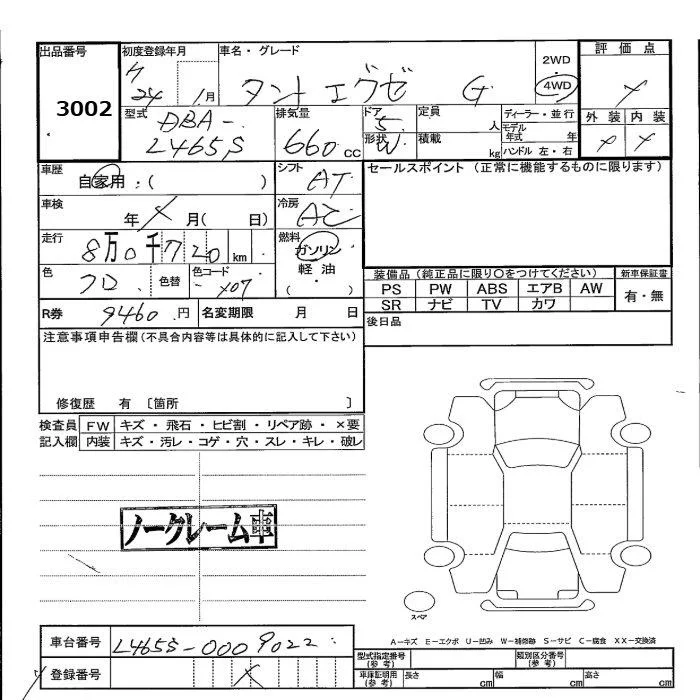 出品番号
3002
初度登録年月
24 1月
車名・グレード
タント エグゼ G
2WD
4WD
評価点
外装 内装
型式
DBA-
L465S
排気量
660 cc
ドア
5
形状
W
定員
人
積載
kg
ディーラー・並行
モデル
年式 年
ハンドル 左・右
車歴
自家用:( )
シフト
AT
セールスポイント(正常に機能するものに限ります)
車検
年 月( 日)
冷房
AC
走行
8万0千720km
燃料
ガソリン
軽油
( )
色
色替
色コード
X07
装備品(純正品に限り〇をつけてください)
PS PW ABS エアB AW
SR ナビ TV カワ
新車保証書
有・無
R券
9460円
名変期限 月 日
後日品
注意事項申告欄(不具合内容等は具体的に記入して下さい)
修復歴 有 〔箇所 〕
検査員
記入欄
FW キズ・飛石・ヒビ割・リペア跡・×要
内装 キズ・汚レ・コゲ・穴・スレ・キレ・破レ
ノークレーム車
スペア
A-キズ E-エクボ U-凹み W-補修跡 S-サビ C-腐食 XX-交換済
車台番号
L465S-0009022
登録番号
型式指定番号
(参考)
類別区分番号
(参考)
車庫証明用
(参考)
長さ cm 幅 cm 高さ cm